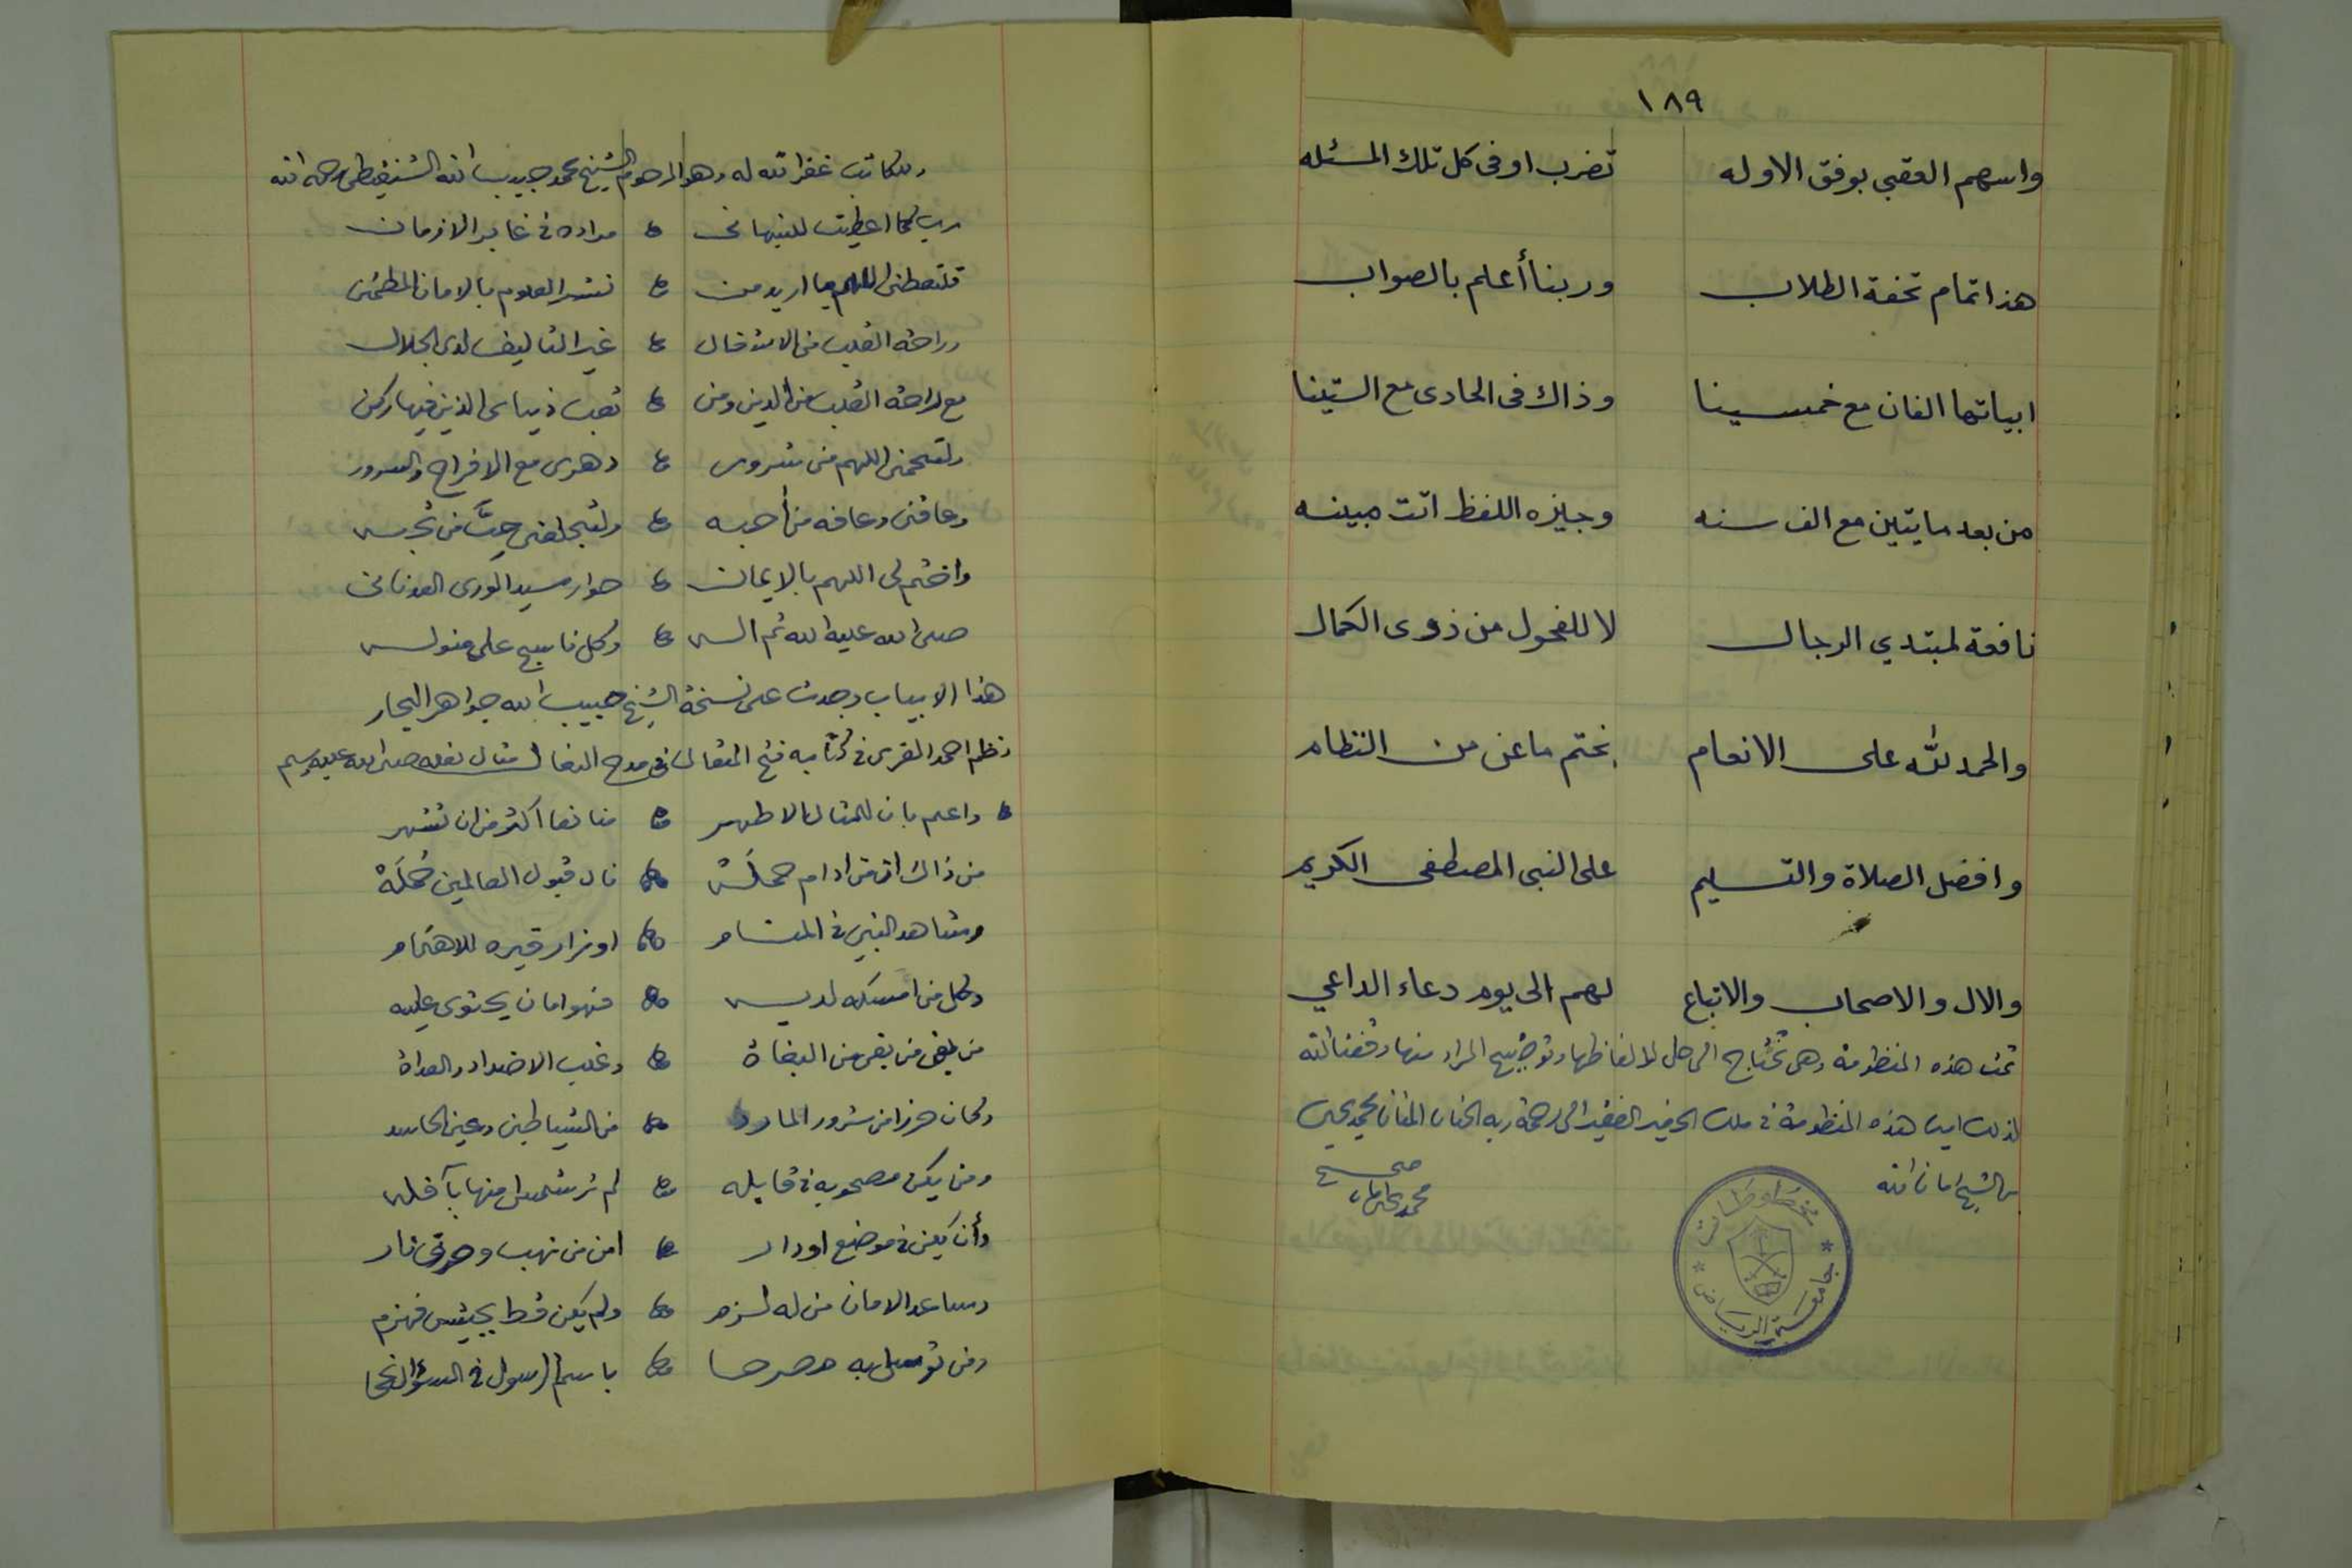 ١٨٩
واسهم العقبي بوفق الاوله تضرب اوفى كل تلك المسئله
هذا تمام تحفة الطلاب وربنا أعلم بالصواب
ابياتها الفان مع خمسينا وذاك في الحادى مع الستينا
من بعد مايتين مع الف سنه وجيزه اللفظ اتت مبينه
نافعة لمبتدي الرجال لا للفحول من ذوى الكمال
والحمد لله على الانعام نختم ماعن من النظام
وافضل الصلاة والتسليم على النبى المصطفى الكريم
والال والاصحاب والاتباع لهم الى يوم دعاء الداعي
تمت هذه المنظومة وهى تحتاج الى حل لالفاظها وتوضيح المراد منها وفقنا الله
لذلك هذه المنظومة فى ملك الفقير الى رحمة ربه المنان محمد
الشيخ امان الله
محمد
مخطوطات
جامعة الرياض
وللكاتب غفر الله له وهو المرحوم الشيخ محمد حبيب الله الشنقيطى رحمه الله
رب كما اعطيت للنبهانى مراده فى غابر الازمان
فلتعطنى اللهم ما اريد من نشر العلوم بالامان المطمئن
وراحة القلب من الاشغال غير التاليف لدى الجلال
مع راحة القلب من الدين ومن تعب الذين فيها ركن
ولتحمنى اللهم من شرور دهرى مع الافراح والسرور
وعافنى وعافه من أحبه
واختم لى اللهم بالايمان جوار سيد الورى العدنانى
صلى الله عليه الله ثم اله وكل ناسج على منواله
هذا الابيات وجدت على نسخة الشيخ حبيب الله جواهر البحار
نظم احمد المقرى فى كتابه فتح المتعال فى مدح النعال مثال نعله صلى الله عليه وسلم
واعلم بان للمثال الاطهر منافعا اكثر من ان تشهر
من ذاك ان من ادام حمله نال قبول العالمين جمله
وشاهد النبي فى المنام او زار قبره للاهتمام
وكل من امسكه لديه فهو امان يحتوى عليه
من بغى من بغى من البغاة وغلب الاضداد والعداة
وكان حرزا من شرور المارد من الشياطين وعين الحاسد
ومن يكن مصحوبه فى قافله لم
وأن يكن فى موضع اودار امن من نهب وحرق نار
وساعد الامان من له لزم ولم يكن قط بجيش فهزم
ومن توسل به باسم الرسول فى السؤال نجحا